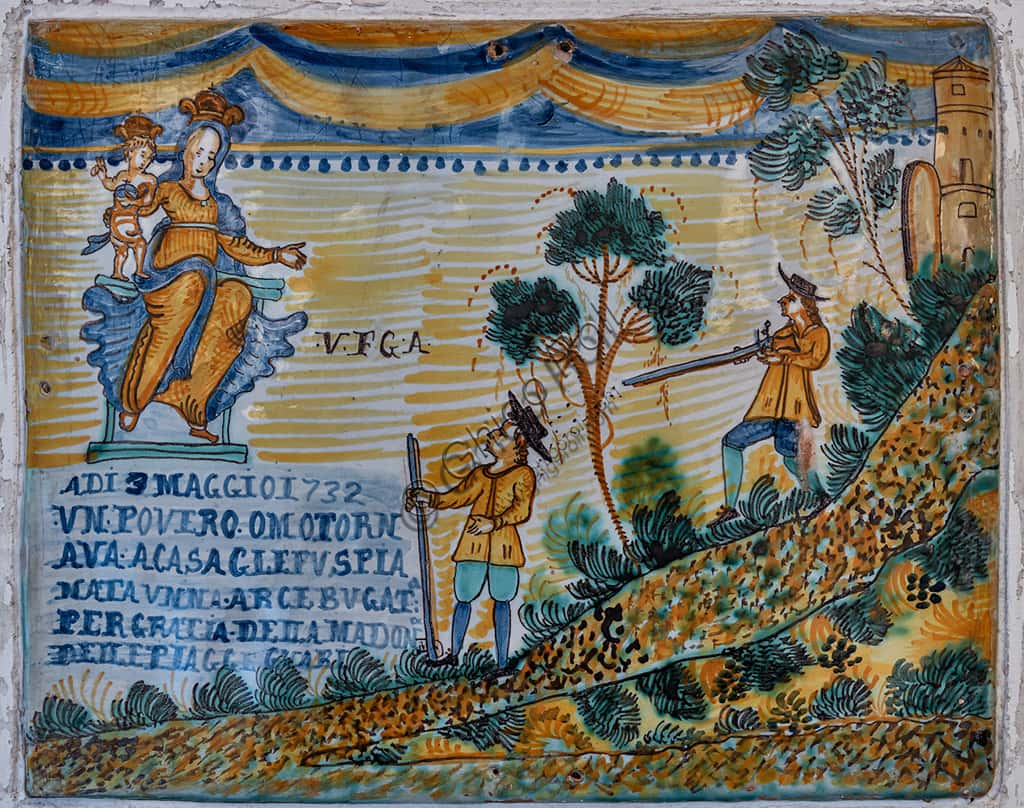 V. F. G. A.
ADI 3 MAGGIO 1732
VN. POVERO. OMO TORN
AVA. A CASA GLE FV SPIA
NATA VNNA. ARCE BVGAT.ᴬ
PER GRATIA DELLA MADON.ᴬ
DELLE PIAGGE GVARI